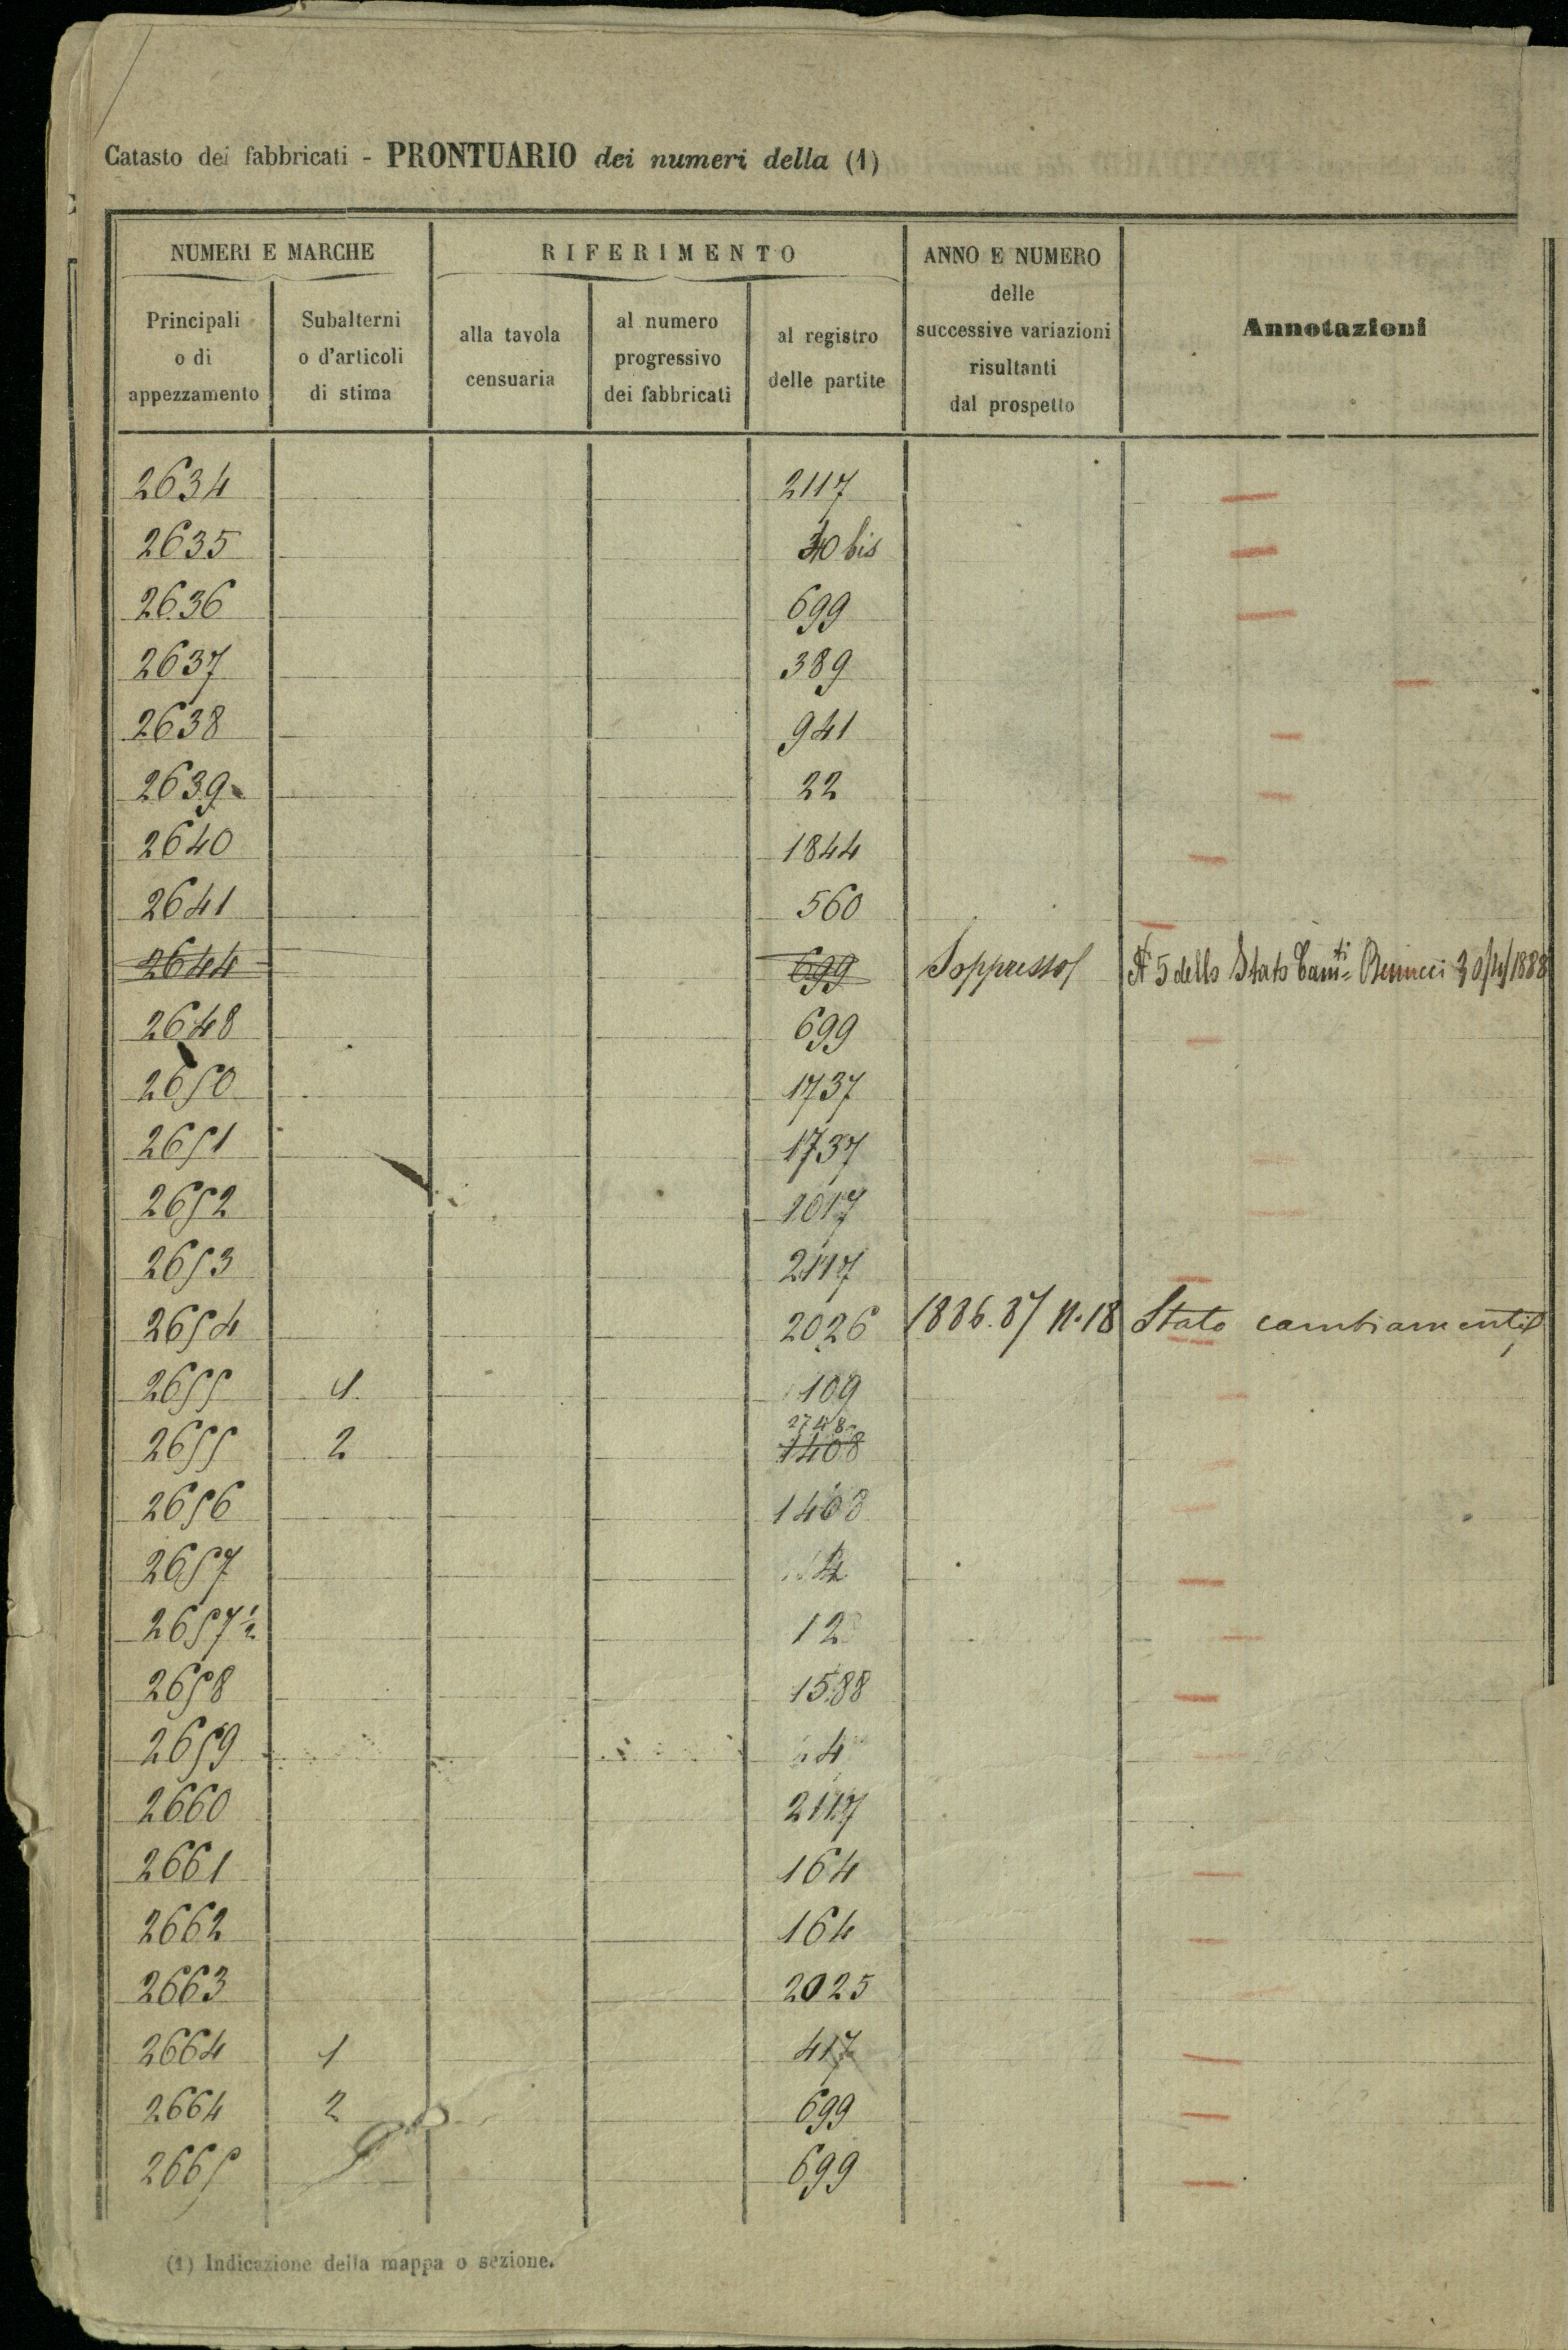 Catasto dei fabbricati - PRONTUARIO dei numeri della (1)
NUMERI E MARCHE
RIFERIMENTO
ANNO E NUMERO
delle
successive variazioni
risultanti
dal prospetto
Annotazioni
Principali
o di
appezzamento
Subalterni
o d'articoli
di stima
alla tavola
censuaria
al numero
progressivo
dei fabbricati
al registro
delle partite
2634 2117
2635 bis
2636 699
2637 389
2638 941
2639 22
2640 1844
2641 560
2644 699 Soppresso N 5 dello Stato 1888
2648 699
2650 1737
2651 1737
2652 1017
2653 2117
2654 2026 1886.87 N.18 Stato cambiamenti
2655 1 109
2748
2655 2 1408
2656 1408
2657
2657 1/2 12
2658 1588
2659 4
2660 2117
2661 164
2662 164
2663 2025
2664 1 417
2664 2 699
2665 699
(1) Indicazione della mappa o sezione.